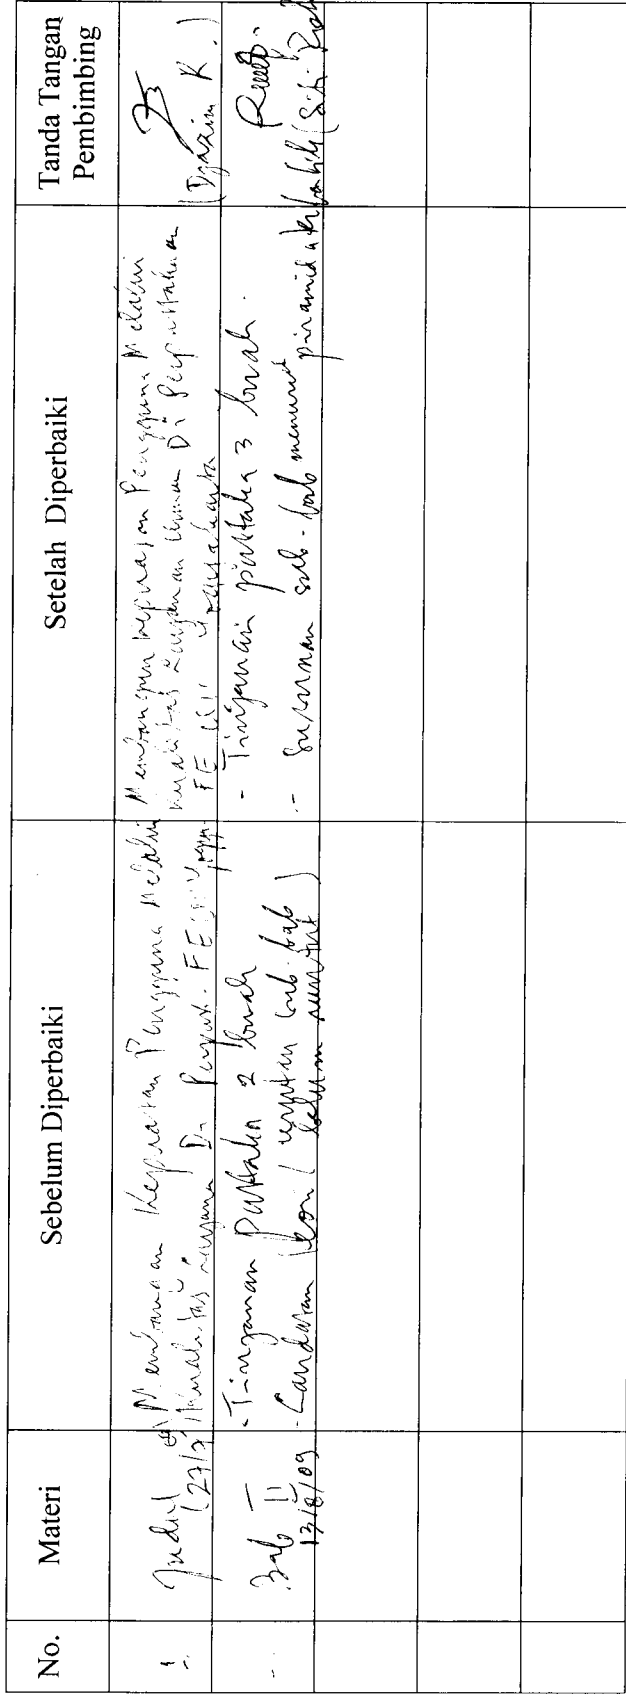 No.
Materi
Sebelum Diperbaiki
Setelah Diperbaiki
Tanda Tangan
Pembimbing
Judul
(27/7)
Kepuasan Pengguna Melalui
Kualitas Layanan Di Perpust. FE
Membangun Kepuasan Pengguna Melalui
Kualitas Layanan Umum Di Perpustakaan
FE UII Yogyakarta
(Djazim R.)
Bab II
13/8/09
- Tinjauan Pustaka 2 buah
- Landasan teori (urutan sub-bab
belum runtut)
- Tinjauan pustaka 3 buah.
- susunan sub-bab menurut piramida terbalik
(Siti